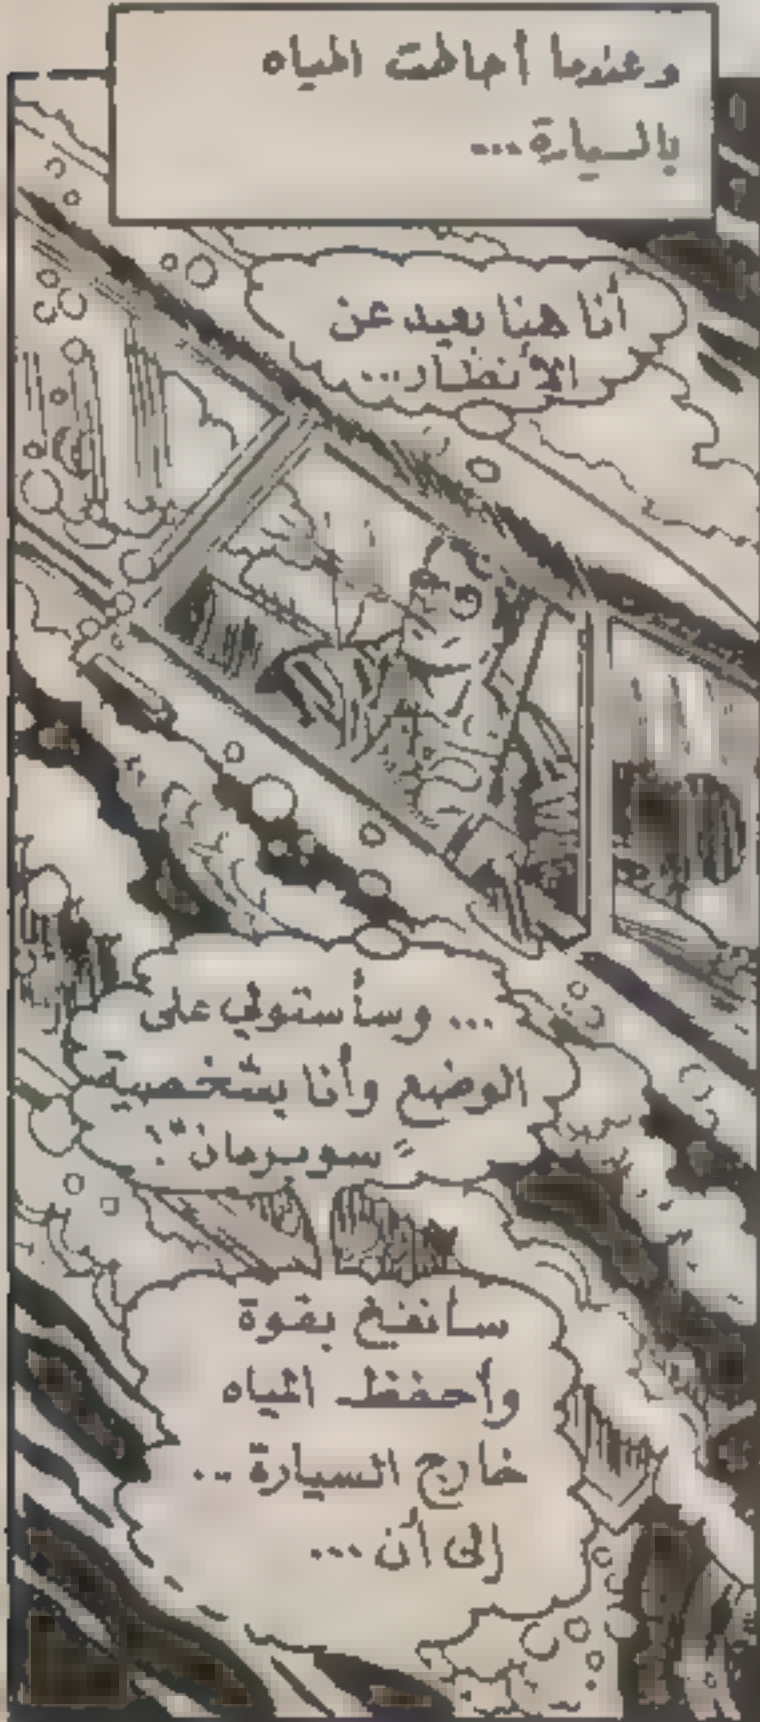 وعندما أحاطت المياه
بالسيارة...
أنا هنا بعيد عن
الأنظار...
... وسأستولي على
الوضع وأنا بشخصية
"سوبرمان"!
سأنفخ بقوة
وأحفظ المياه
خارج السيارة ..
إلى أن ...